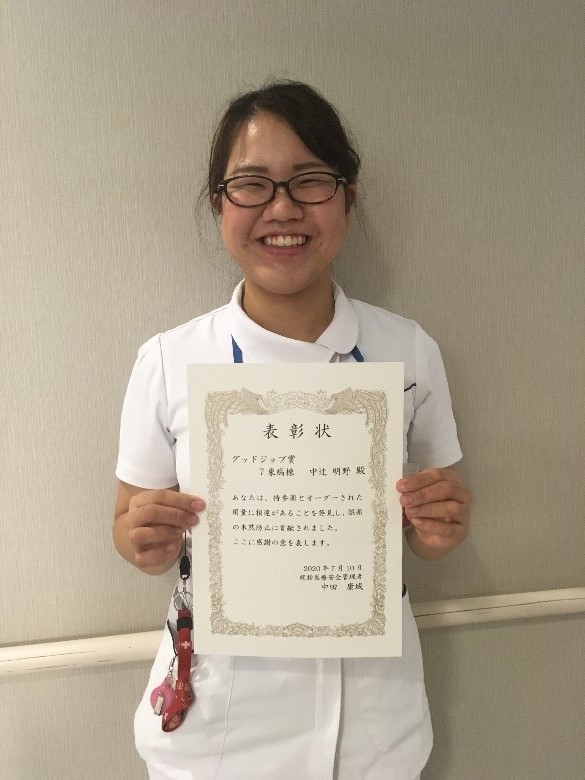 表彰状
グッドジョブ賞
7東病棟 中辻 明野 殿
あなたは、持参薬とオーダーされた
用量に相違があることを発見し、誤薬
の未然防止に貢献されました。
ここに感謝の意を表します。
2020年7月10日
統括医療安全管理者
中田 康城